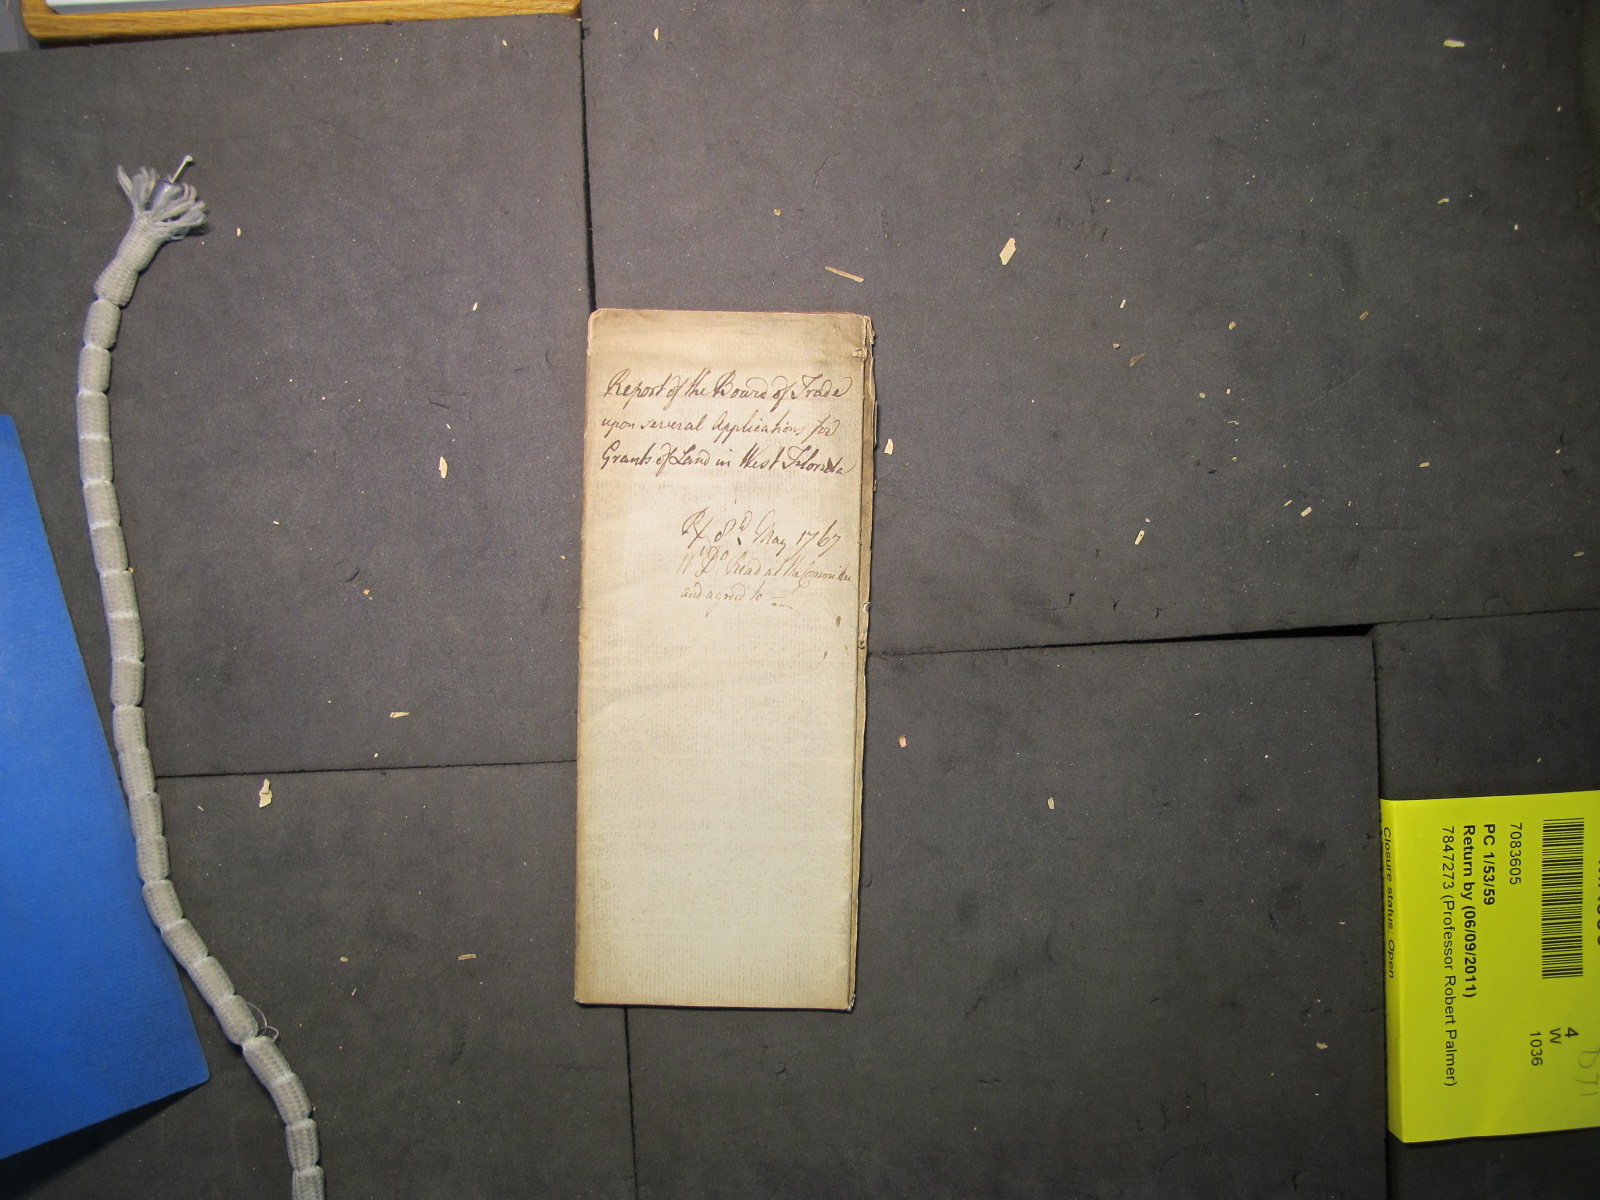 Report of the Board of Trade
upon several Applications for
Grants of Land in West Florida
Rx 8.d May 1767
11 Do. Read at the Committee
and agreed to
7083605
PC 1/53/59
Return by (06/09/2011)
7847273 (Professor Robert Palmer)
Closure status: Open
4
W
1036